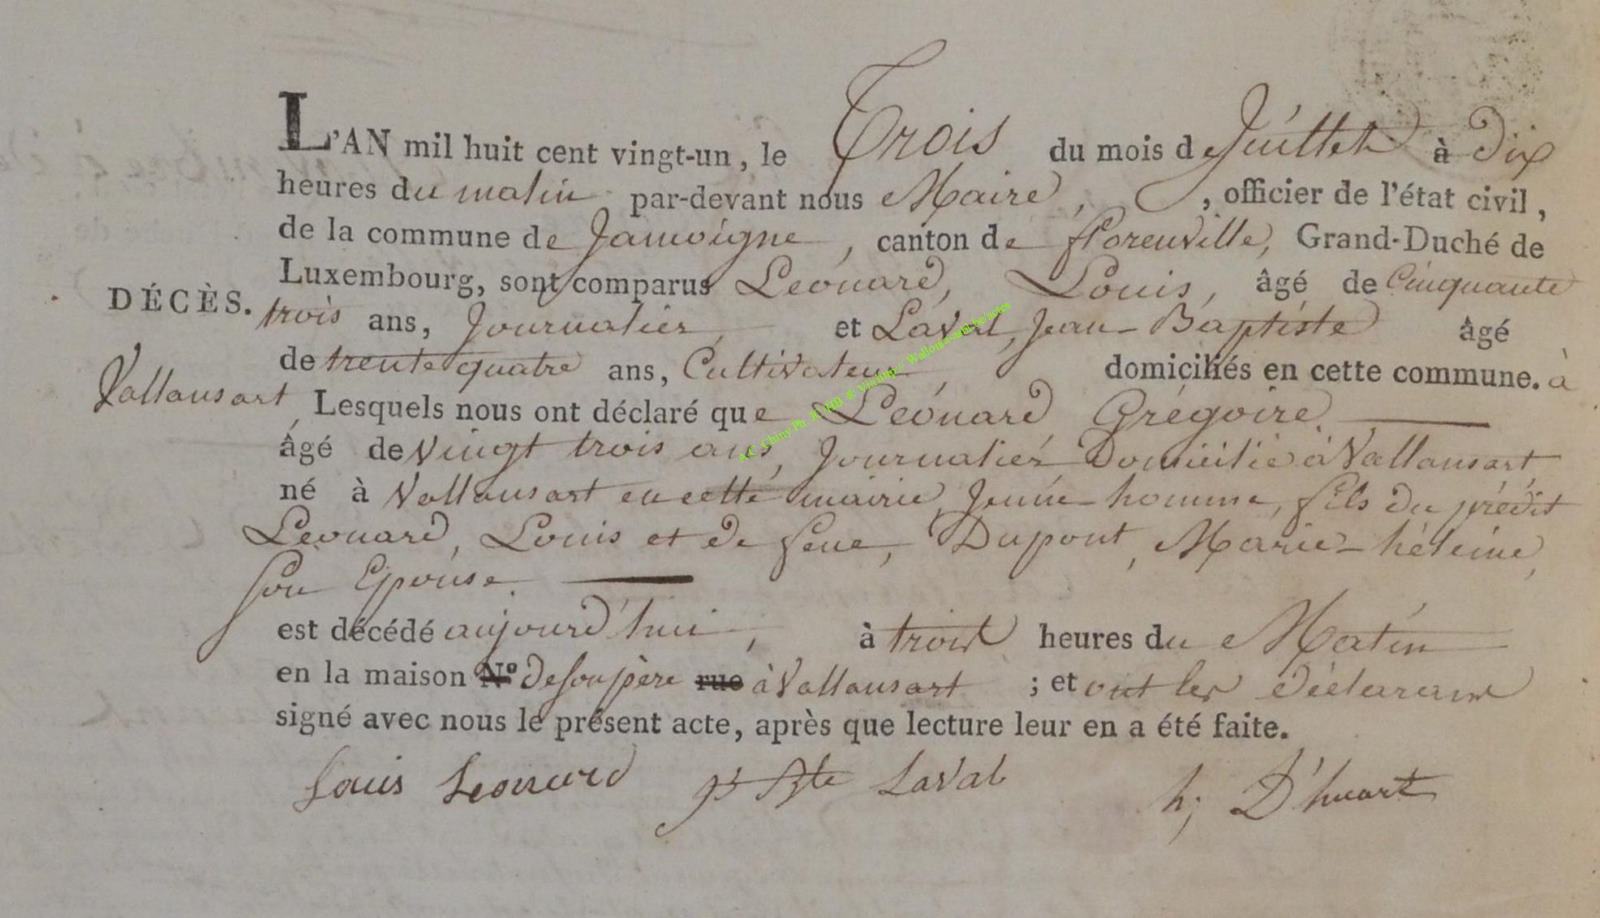 L'AN mil huit cent vingt-un, le Trois du mois de Juillet à Dix
heures du matin par-devant nous Maire, , officier de l'état civil,
de la commune de Jamoigne, canton de florenville, Grand-Duché de
Luxembourg, sont comparus Léonard, Louis, âgé de Cinquante
DÉCÈS. trois ans, Journalier, et Laval, Jean-Baptiste âgé
de trente quatre ans, Cultivateur, domiciliés en cette commune. à
Vallansart, Lesquels nous ont déclaré que Léonard Grégoire.
âgé de Vingt trois ans, Journalier Domicilié à Vallansart
né à Vallansart en cette mairie, Jeune-homme, fils du prédit
Léonard, Louis et de feue, Dupont, Marie-héleine,
son Epouse.
est décédé aujourd'hui, à trois heures du Matin
en la maison N° de son père rue à Vallansart ; et ont les déclarans
signé avec nous le présent acte, après que lecture leur en a été faite.
Louis Leonard Jn Bte Laval h; D'huart